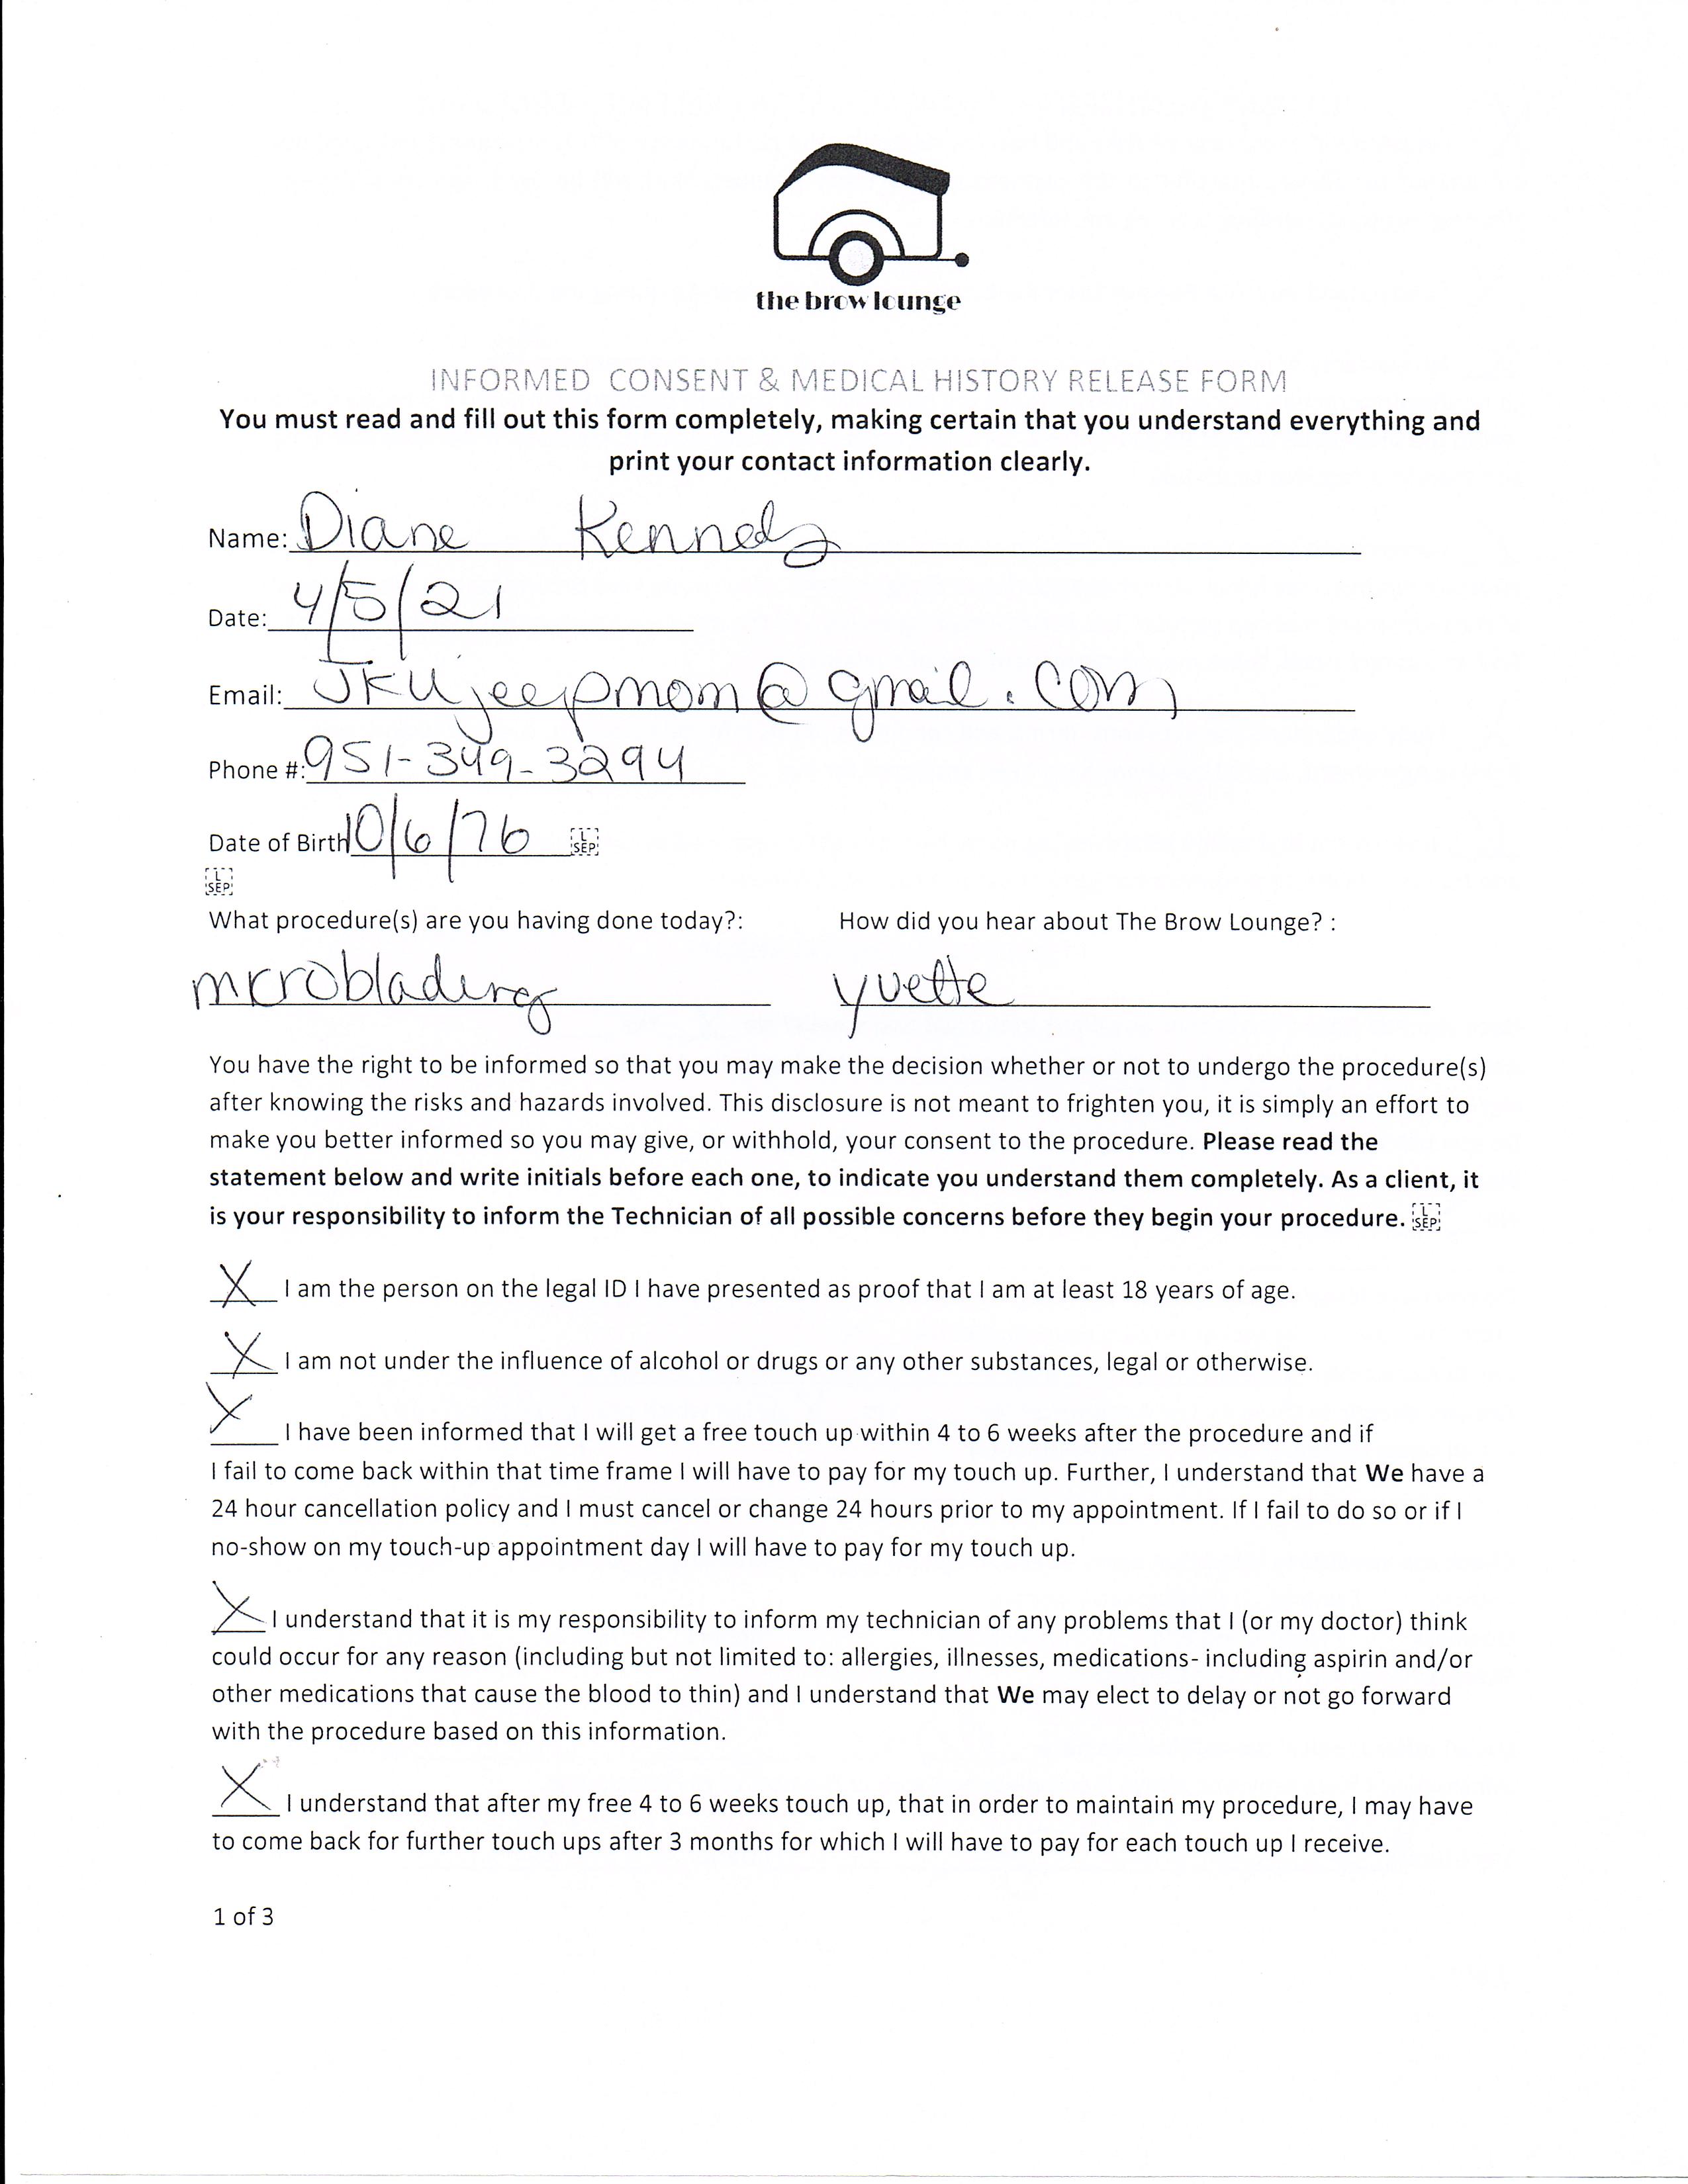 the brow lounge
INFORMED CONSENT & MEDICAL HISTORY RELEASE FORM
You must read and fill out this form completely, making certain that you understand everything and
print your contact information clearly.
Name: Diane Kennedy
Date: 4/5/21
Email: JKUjeepmom@gmail.com
Phone #: 951-349-3294
Date of Birth 10/6/76 L SEP
L SEP
What procedure(s) are you having done today?: How did you hear about The Brow Lounge? :
microblading yvette
You have the right to be informed so that you may make the decision whether or not to undergo the procedure(s)
after knowing the risks and hazards involved. This disclosure is not meant to frighten you, it is simply an effort to
make you better informed so you may give, or withhold, your consent to the procedure. Please read the
statement below and write initials before each one, to indicate you understand them completely. As a client, it
is your responsibility to inform the Technician of all possible concerns before they begin your procedure. L SEP
X I am the person on the legal ID I have presented as proof that I am at least 18 years of age.
X I am not under the influence of alcohol or drugs or any other substances, legal or otherwise.
X I have been informed that I will get a free touch up within 4 to 6 weeks after the procedure and if
I fail to come back within that time frame I will have to pay for my touch up. Further, I understand that We have a
24 hour cancellation policy and I must cancel or change 24 hours prior to my appointment. If I fail to do so or if I
no-show on my touch-up appointment day I will have to pay for my touch up.
X I understand that it is my responsibility to inform my technician of any problems that I (or my doctor) think
could occur for any reason (including but not limited to: allergies, illnesses, medications- including aspirin and/or
other medications that cause the blood to thin) and I understand that We may elect to delay or not go forward
with the procedure based on this information.
X I understand that after my free 4 to 6 weeks touch up, that in order to maintain my procedure, I may have
to come back for further touch ups after 3 months for which I will have to pay for each touch up I receive.
1 of 3